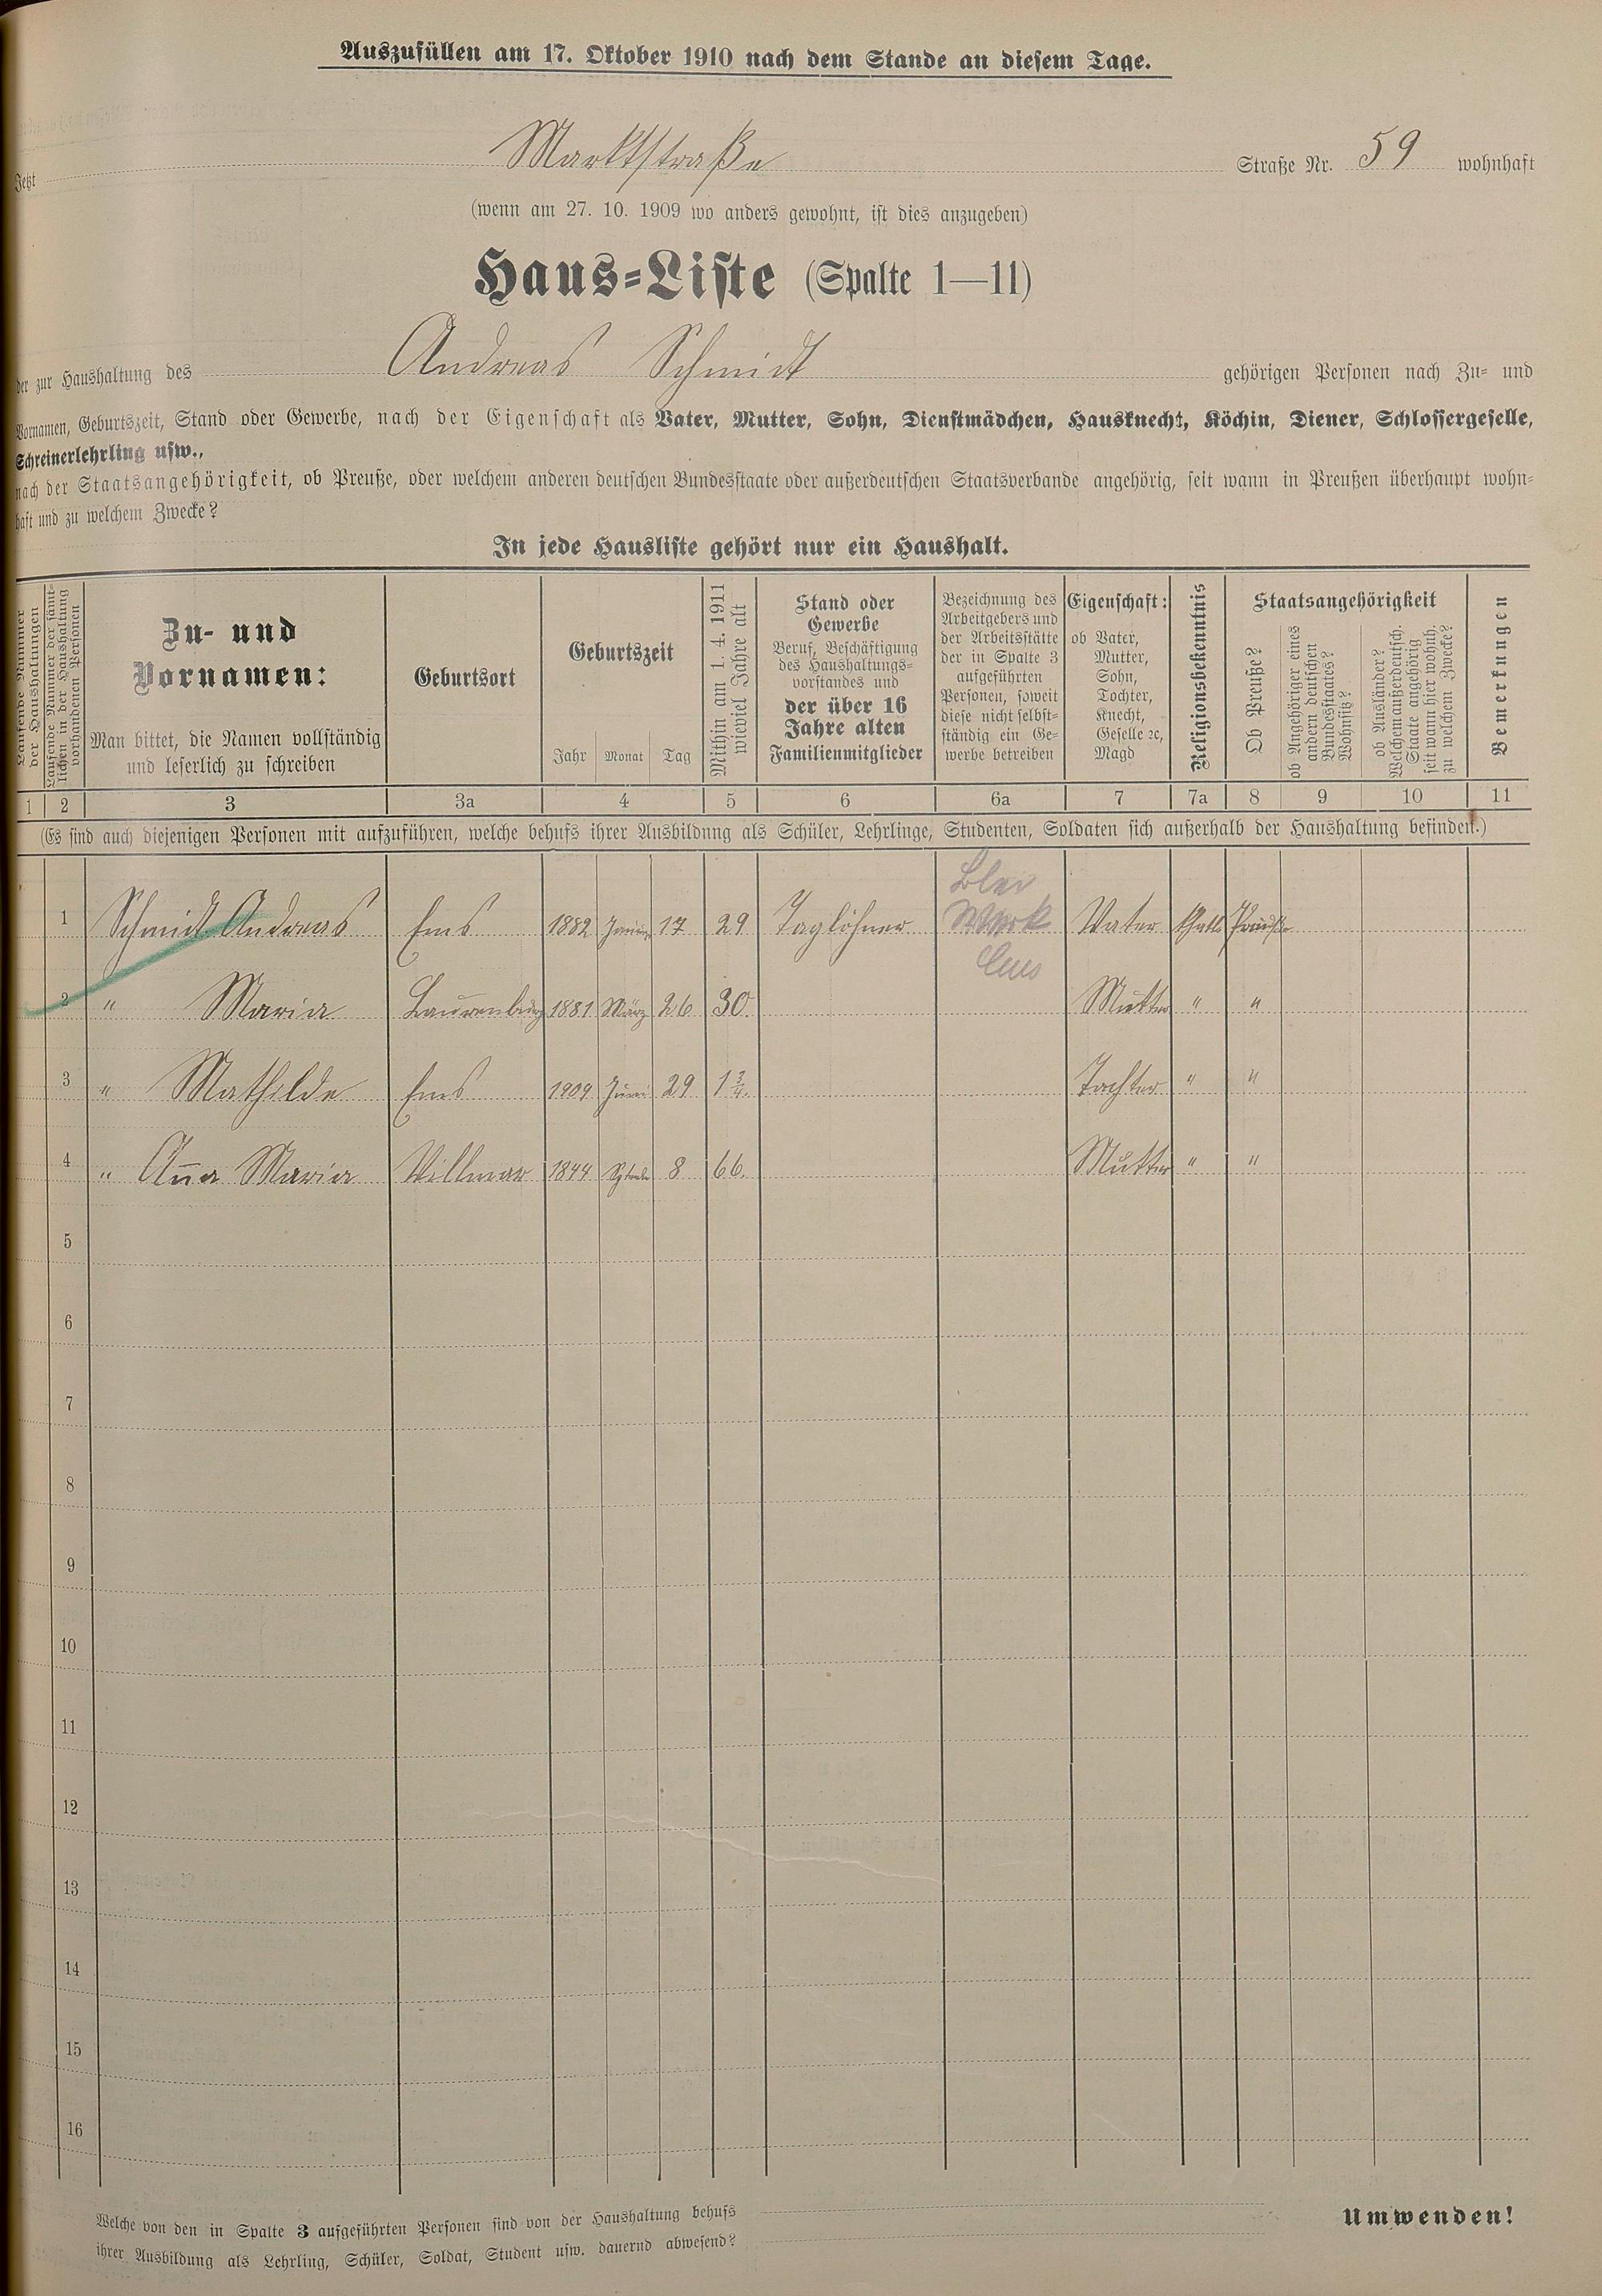 Auszufüllen am 17. Oktober 1910 nach dem Stande an diesem Tage.
Jetzt Marktstraße Straße Nr. 59 wohnhaft
(wenn am 27. 10. 1909 wo anders gewohnt, ist dies anzugeben)
Haus-Liste (Spalte 1—11)
der zur Haushaltung des Andreas Schmidt gehörigen Personen nach Zu- und
Vornamen, Geburtszeit, Stand oder Gewerbe, nach der Eigenschaft als Vater, Mutter, Sohn, Dienstmädchen, Hausknecht, Köchin, Diener, Schlossergeselle,
Schreinerlehrling usw.,
nach der Staatsangehörigkeit, ob Preuße, oder welchem anderen deutschen Bundesstaate oder außerdeutschen Staatsverbande angehörig, seit wann in Preußen überhaupt wohn-
haft und zu welchem Zwecke?
In jede Hausliste gehört nur ein Haushalt.
Laufende Nummer
der Haushaltungen
Laufende Nummer der sämt-
lichen in der Haushaltung
vorhandenen Personen
Zu- und
Vornamen:
Man bittet, die Namen vollständig
und leserlich zu schreiben
Geburtsort
Geburtszeit
Jahr Monat Tag
Mithin am 1. 4. 1911
wieviel Jahre alt
Stand oder
Gewerbe
Beruf, Beschäftigung
des Haushaltungs-
vorstandes und
der über 16
Jahre alten
Familienmitglieder
Bezeichnung des
Arbeitgebers und
der Arbeitsstätte
der in Spalte 3
aufgeführten
Personen, soweit
diese nicht selbst-
ständig ein Ge-
werbe betreiben
Eigenschaft:
ob Vater,
Mutter,
Sohn,
Tochter,
Knecht,
Geselle ꝛc,
Magd
Religionsbekenntnis
Staatsangehörigkeit
Ob Preuße?
ob Angehöriger eines
andern deutschen
Bundesstaates?
Wohnsitz?
ob Ausländer?
Welchem außerdeutsch.
Staate angehörig
seit wann hier wohnh.
zu welchem Zwecke?
Bemerkungen
1 2 3 3a 4 5 6 6a 7 7a 8 9 10 11
(Es sind auch diejenigen Personen mit aufzuführen, welche behufs ihrer Ausbildung als Schüler, Lehrlinge, Studenten, Soldaten sich außerhalb der Haushaltung befinden.)
1 Schmidt Andreas Ems 1882 Januar 17 29 Taglöhner Blei Werk Ems Vater kath. Preuße
2 " Maria Laurenburg 1881 März 26 30. Mutter " "
3 " Mathilde Ems 1909 Juni 29 1 3/4. Tochter " "
4 " Anna Maria Villmar 1844 8 66. Mutter " "
5
6
7
8
9
10
11
12
13
14
15
16
Welche von den in Spalte 3 aufgeführten Personen sind von der Haushaltung behufs
ihrer Ausbildung als Lehrling, Schüler, Soldat, Student usw. dauernd abwesend?
Umwenden!